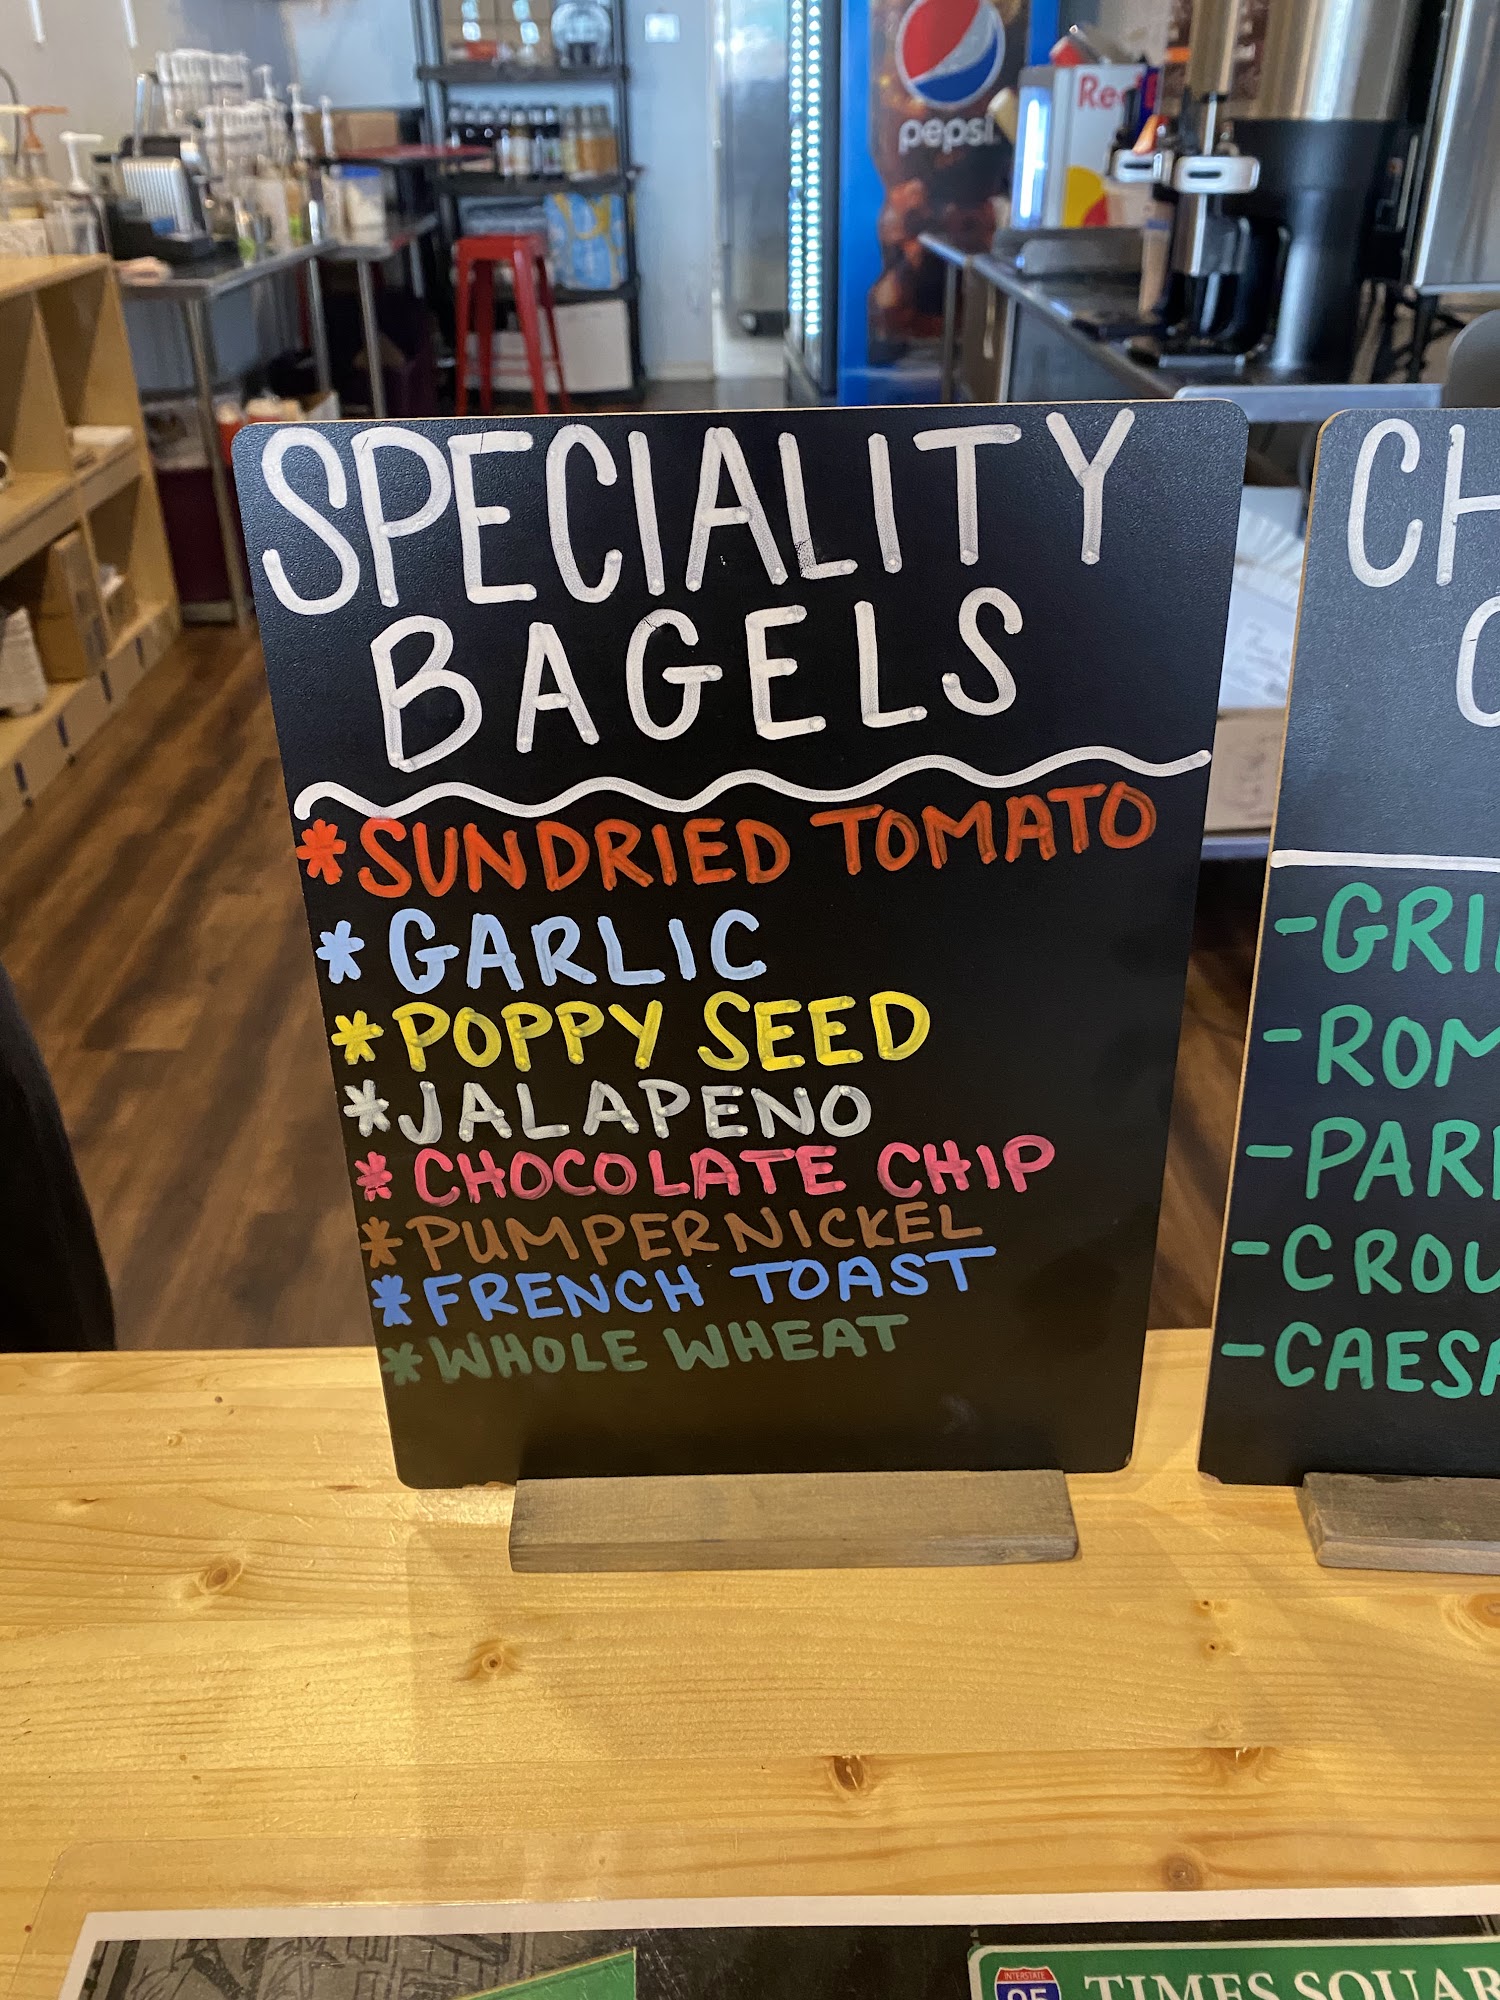 pepsi
SPECIALITY
BAGELS
*SUNDRIED TOMATO
*GARLIC
*POPPY SEED
*JALAPENO
*CHOCOLATE CHIP
*PUMPERNICKEL
*FRENCH TOAST
*WHOLE WHEAT
-CAESA
INTERSTATE
95
TIMES SQUAR